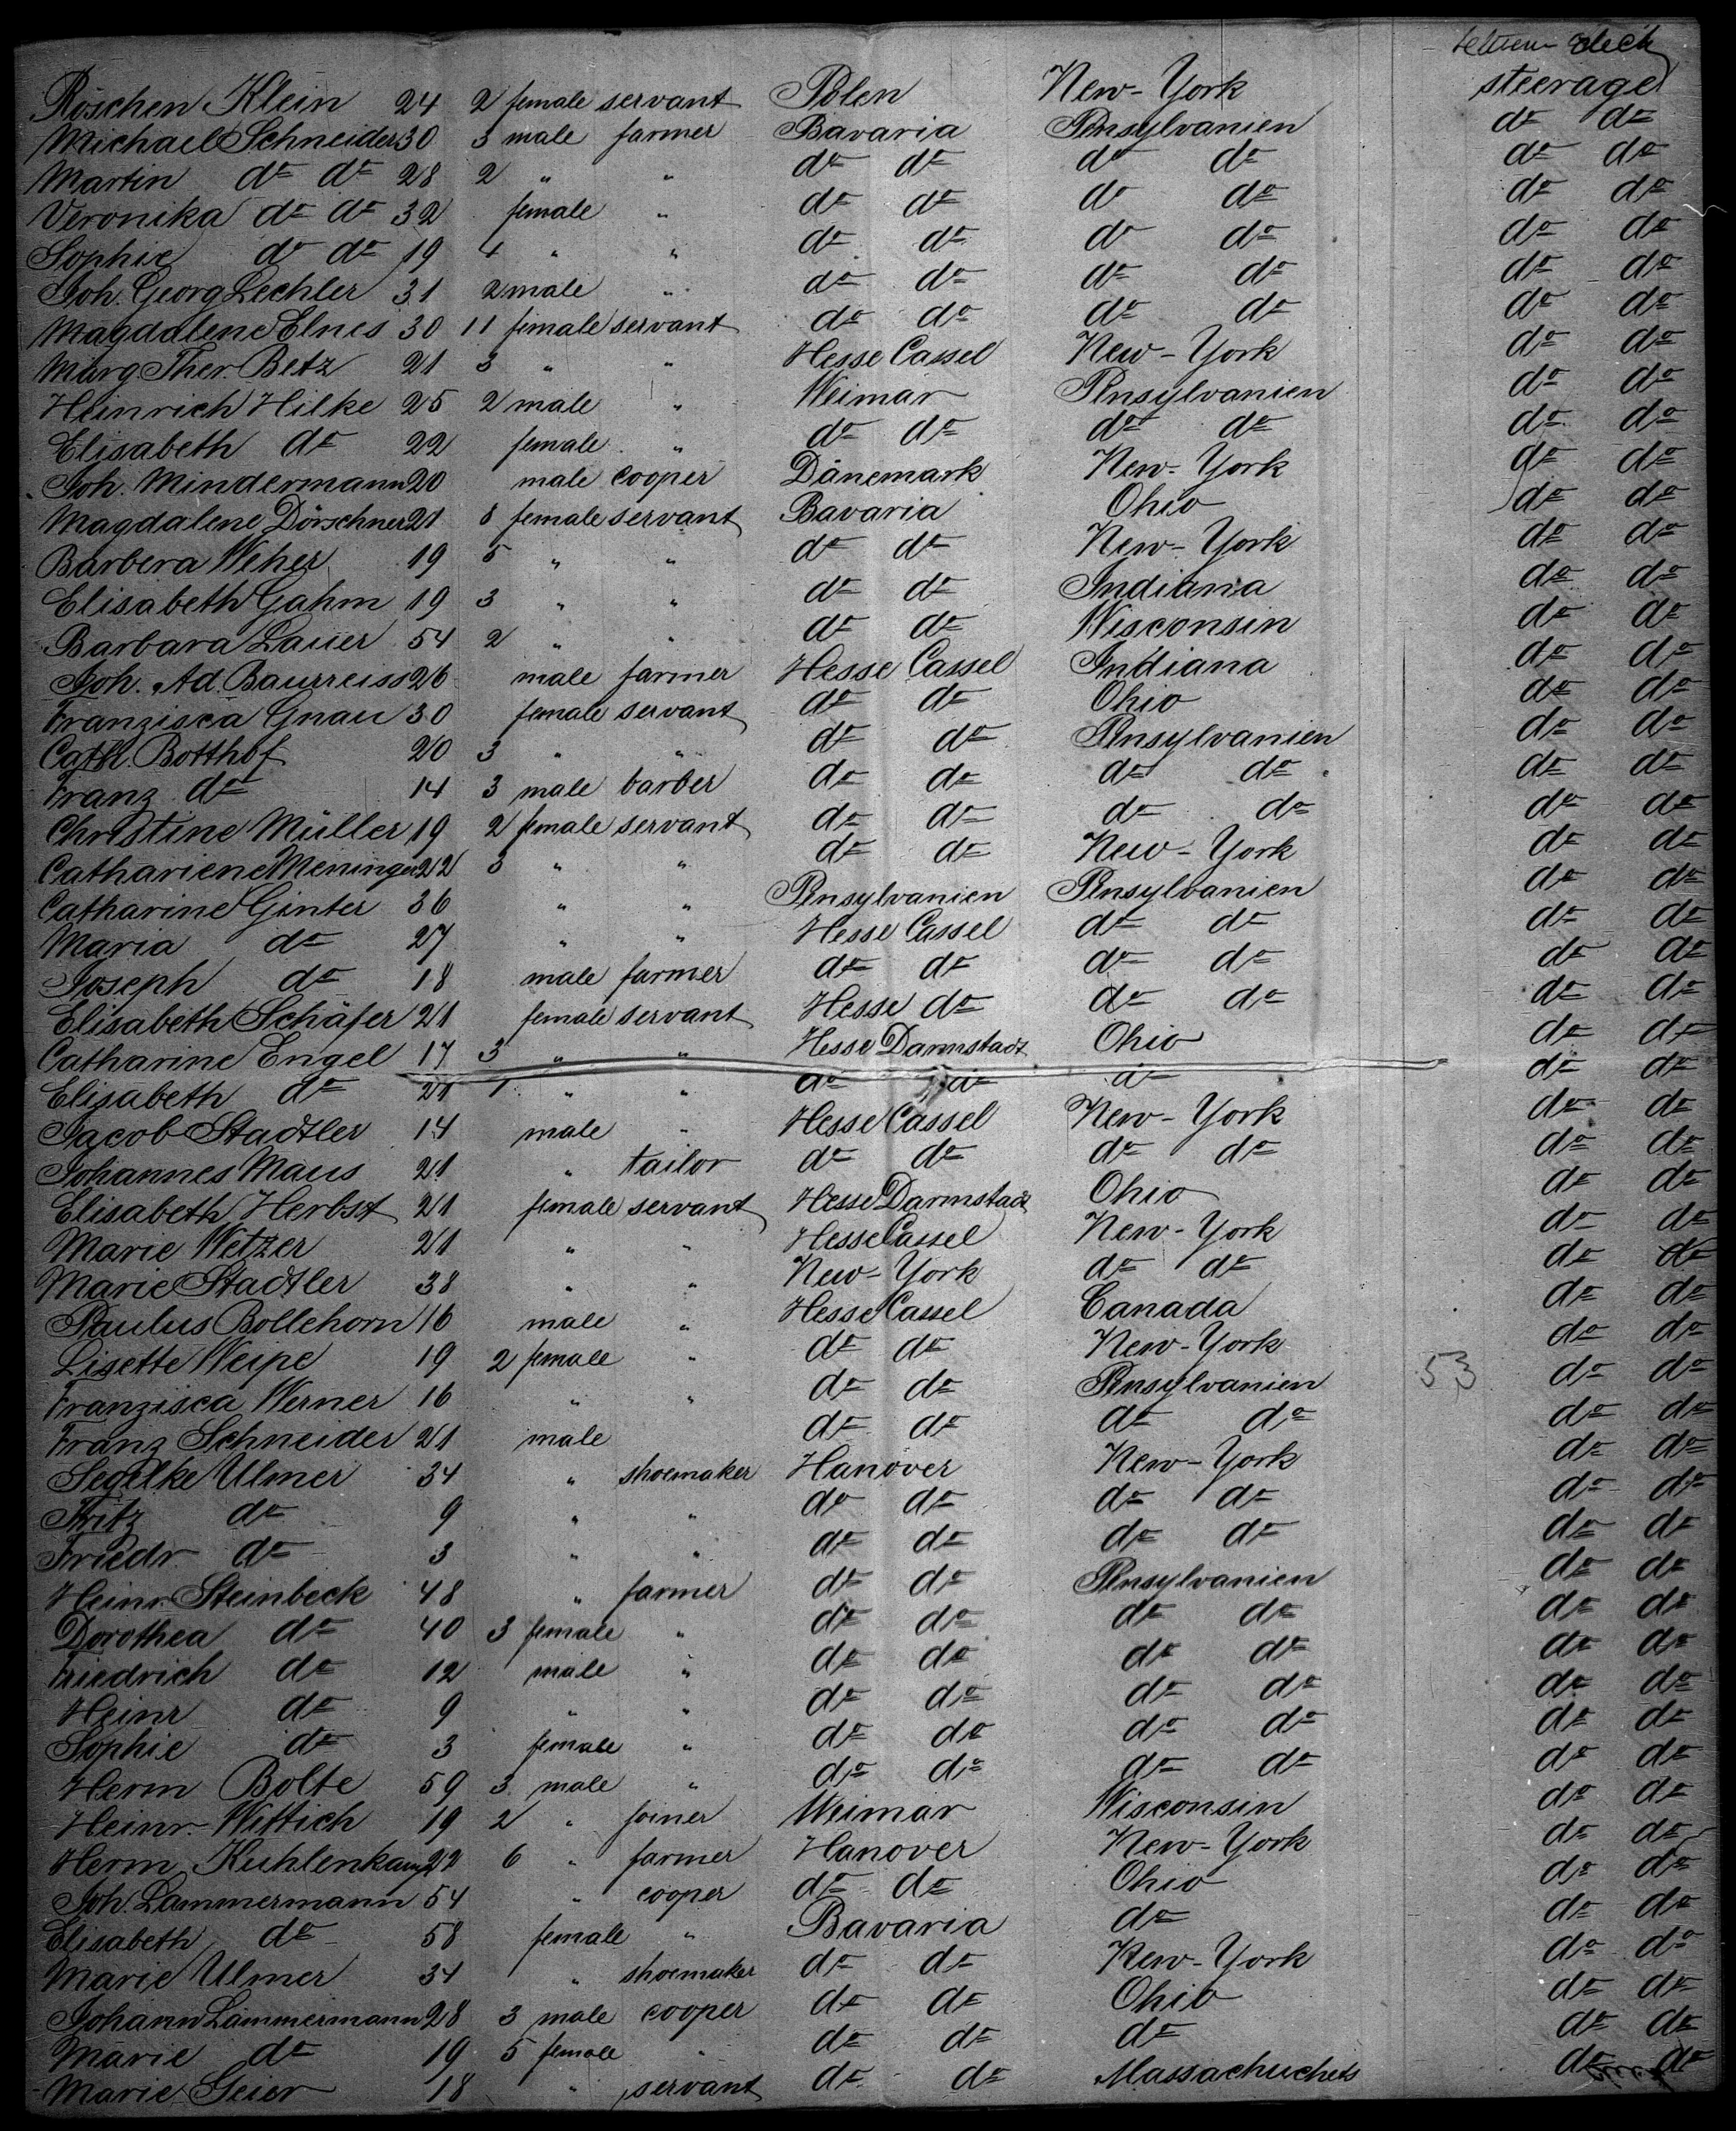 between deck
Röschen Klein 24 2 female servant Polen New-York steerage
Michael Schneider 30 3 male farmer Bavaria Pensylvanien do do
Martin do do 28 2 " " do do do do do do
Veronika do do 32 female " do do do do do do
Sophie do do 19 4 " " do do do do do do
Joh. Georg Lechler 31 2 male " do do do do do do
Magdalene Elnes 30 11 female servant do do do do do do
Marg. Ther. Betz 21 3 " " Hesse Cassel New-York do do
Heinrich Hilke 25 2 male " Weimar Pensylvanien do do
Elisabeth do 22 female " do do do do do do
Joh. Mindermann 20 male cooper Dänemark New-York do do
Magdalene Dörschner 21 8 female servant Bavaria Ohio do do
Barbera Weher 19 5 " " do do New-York do do
Elisabeth Gahm 19 3 " " do do Indiana do do
Barbara Lauer 54 2 " " do do Wisconsin do do
Joh. Ad. Baurreiss 26 male farmer Hesse Cassel Indiana do do
Franzisca Gnau 30 female servant do do Ohio do do
Cath. Botthof 20 3 " " do do Pensylvanien do do
Franz do 14 3 male barber do do do do do do
Christine Müller 19 2 female servant do do do do do do
Cathariene Meninger 22 3 " " do do New-York do do
Catharine Ginter 36 " " Pensylvanien Pensylvanien do do
Maria do 27 " " Hesse Cassel do do do do
Joseph do 18 male farmer do do do do do do
Elisabeth Schäfer 21 female servant Hesse do do do do do
Catharine Engel 17 3 " " Hesse Darmstadt Ohio do do
Elisabeth do 21 1 " " do do do do do
Jacob Stadtler 14 male " Hesse Cassel New-York do do
Johannes Maus 21 " tailor do do do do do do
Elisabeth Herbst 21 female servant Hesse Darmstadt Ohio do do
Marie Wetzer 21 " " Hesse Cassel New-York do do
Marie Stadtler 38 " " New-York do do do do
Paulus Bollehorn 16 male " Hesse Cassel Canada do do
Lisette Weipe 19 2 female " do do New-York do do
Franzisca Werner 16 " " do do Pensylvanien 53 do do
Franz Schneider 21 male do do do do do do
Segelke Ulmer 34 " shoemaker Hanover New-York do do
Fritz do 9 " " do do do do do do
Friedr do 3 " " do do do do do do
Heinr. Steinbeck 48 " farmer do do Pensylvanien do do
Dorothea do 40 3 female " do do do do do do
Friedrich do 12 male " do do do do do do
Heinr do 9 " " do do do do do do
Sophie do 3 female " do do do do do do
Herm Bolte 59 3 male " do do do do do do
Heinr. Wittich 19 2 " joiner Weimar Wisconsin do do
Herm. Kuhlenkamp 22 6 " farmer Hanover New-York do do
Joh. Lammermann 54 " cooper do do Ohio do do
Elisabeth do 58 female " Bavaria do do do
Marie Ulmer 34 " shoemaker do do New-York do do
Johann Lammermann 28 3 male cooper do do Ohio do do
Marie do 19 5 female " do do do do do
Marie Geier 18 " servant do do Massachuchets do do